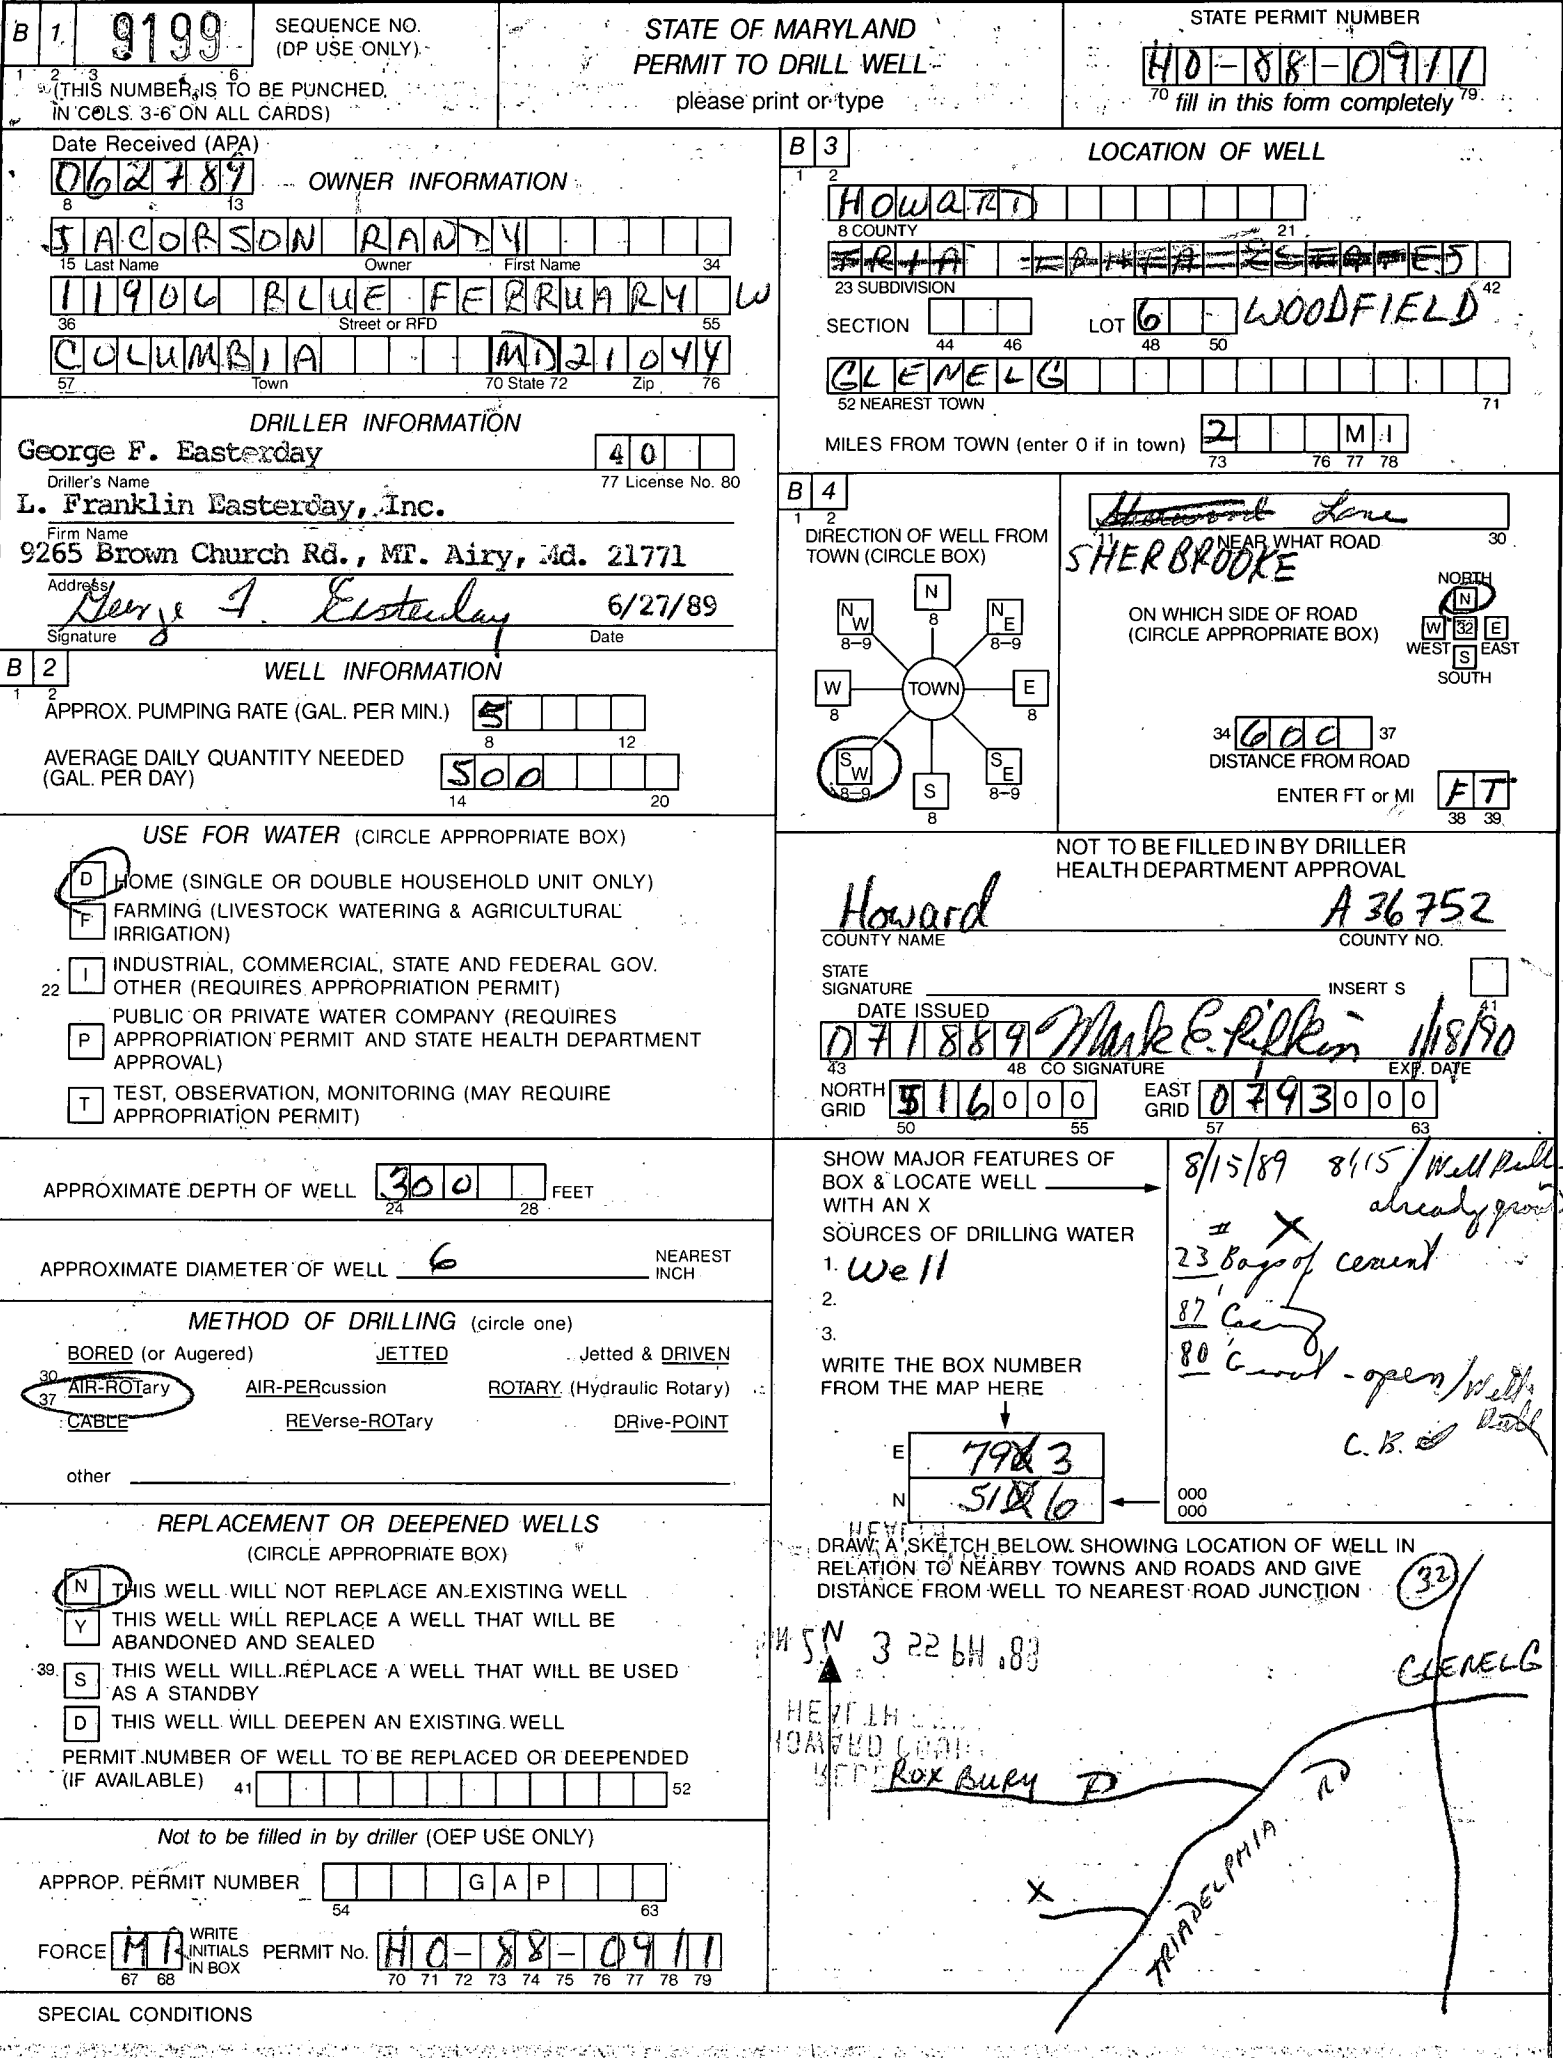 B 1 9199 SEQUENCE NO.
(DP USE ONLY)
1 2 3 6
(THIS NUMBER IS TO BE PUNCHED
IN COLS. 3-6 ON ALL CARDS)
STATE OF MARYLAND
PERMIT TO DRILL WELL
please print or type
STATE PERMIT NUMBER
HO-88-0911
70 fill in this form completely 79
Date Received (APA)
062789
8 13
OWNER INFORMATION
JACOBSON RANDY
15 Last Name Owner First Name 34
11906 BLUE FEBRUARY W
36 Street or RFD 55
COLUMBIA MD 21044
57 Town 70 State 72 Zip 76
DRILLER INFORMATION
George F. Easterday 40
Driller's Name 77 License No. 80
L. Franklin Easterday, Inc.
Firm Name
9265 Brown Church Rd., MT. Airy, Md. 21771
Address
George F. Easterday 6/27/89
Signature Date
B 2 WELL INFORMATION
1 2
APPROX. PUMPING RATE (GAL. PER MIN.) 5
8 12
AVERAGE DAILY QUANTITY NEEDED
(GAL. PER DAY) 500
14 20
USE FOR WATER (CIRCLE APPROPRIATE BOX)
D HOME (SINGLE OR DOUBLE HOUSEHOLD UNIT ONLY)
F FARMING (LIVESTOCK WATERING & AGRICULTURAL
IRRIGATION)
22 I INDUSTRIAL, COMMERCIAL, STATE AND FEDERAL GOV.
OTHER (REQUIRES APPROPRIATION PERMIT)
P PUBLIC OR PRIVATE WATER COMPANY (REQUIRES
APPROPRIATION PERMIT AND STATE HEALTH DEPARTMENT
APPROVAL)
T TEST, OBSERVATION, MONITORING (MAY REQUIRE
APPROPRIATION PERMIT)
APPROXIMATE DEPTH OF WELL 300 FEET
24 28
APPROXIMATE DIAMETER OF WELL 6 NEAREST
INCH
METHOD OF DRILLING (circle one)
BORED (or Augered) JETTED Jetted & DRIVEN
30 AIR-ROTary AIR-PERcussion ROTARY (Hydraulic Rotary)
37 CABLE REVerse-ROTary DRive-POINT
other
REPLACEMENT OR DEEPENED WELLS
(CIRCLE APPROPRIATE BOX)
N THIS WELL WILL NOT REPLACE AN EXISTING WELL
Y THIS WELL WILL REPLACE A WELL THAT WILL BE
ABANDONED AND SEALED
39 S THIS WELL WILL REPLACE A WELL THAT WILL BE USED
AS A STANDBY
D THIS WELL WILL DEEPEN AN EXISTING WELL
PERMIT NUMBER OF WELL TO BE REPLACED OR DEEPENDED
(IF AVAILABLE) 41 52
Not to be filled in by driller (OEP USE ONLY)
APPROP. PERMIT NUMBER G A P
54 63
FORCE MR WRITE
INITIALS
IN BOX
67 68
PERMIT No. HO-88-0911
70 71 72 73 74 75 76 77 78 79
SPECIAL CONDITIONS
B 3 LOCATION OF WELL
1 2
HOWARD
8 COUNTY 21
23 SUBDIVISION 42
SECTION LOT 6 WOODFIELD
44 46 48 50
GLENELG
52 NEAREST TOWN 71
MILES FROM TOWN (enter 0 if in town) 2 MI
73 76 77 78
B 4
1 2
DIRECTION OF WELL FROM
TOWN (CIRCLE BOX)
N
8
NW
8-9
NE
8-9
W
8
TOWN
E
8
SW
8-9
SE
8-9
S
8
Lane
11 NEAR WHAT ROAD 30
SHERBROOKE
ON WHICH SIDE OF ROAD
(CIRCLE APPROPRIATE BOX)
NORTH
N
W 32 E
WEST EAST
S
SOUTH
34 600 37
DISTANCE FROM ROAD
ENTER FT or MI FT
38 39
NOT TO BE FILLED IN BY DRILLER
HEALTH DEPARTMENT APPROVAL
Howard A 36752
COUNTY NAME COUNTY NO.
STATE
SIGNATURE INSERT S
41
DATE ISSUED
071889 Mark E. Rifkin 1/18/90
43 48 CO SIGNATURE EXP. DATE
NORTH
GRID 516000
50 55
EAST
GRID 0793000
57 63
SHOW MAJOR FEATURES OF
BOX & LOCATE WELL
WITH AN X
SOURCES OF DRILLING WATER
1. Well
2.
3.
WRITE THE BOX NUMBER
FROM THE MAP HERE
E 793
N 516
8/15/89 8/15/Well
already
X
23 Bags of cement
87' Casing
80' Grout - open/Well
C.B.
000
000
DRAW A SKETCH BELOW SHOWING LOCATION OF WELL IN
RELATION TO NEARBY TOWNS AND ROADS AND GIVE
DISTANCE FROM WELL TO NEAREST ROAD JUNCTION
32
N
GLENELG
ROXBURY RD
TRIADELPHIA RD
X